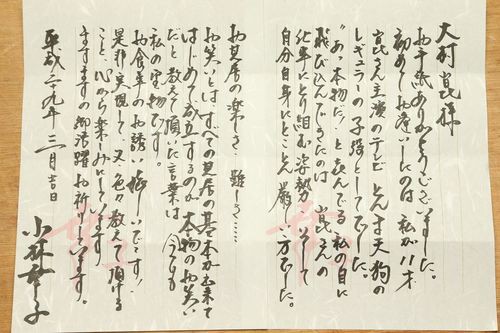 大村崑様
お手紙ありがとうございました。
初めてお逢いしたのは私が11才
崑さん主演のテレビ とんま天狗の
レギュラーの子役としてでした。
"あっ本物だ!"と喜んでる私の目に
飛び込んできたのは 崑さんの
仕事にとり組む姿勢 そして
自分自身にとことん厳しい方でした。
お芝居の楽しさ、難しさ……
お笑いとは、すべての芝居の基本が出来て
はじめて成立するのが 本物のお笑い
だと教えて頂いた言葉は 今でも
私の宝物です。
お食事のお誘い 嬉しいです!
是非実現して 又色々教えて頂ける
こと、心から楽しみにしてます
ますますの御活躍お祈りしています。
平成二十九年 三月吉日
小林幸子